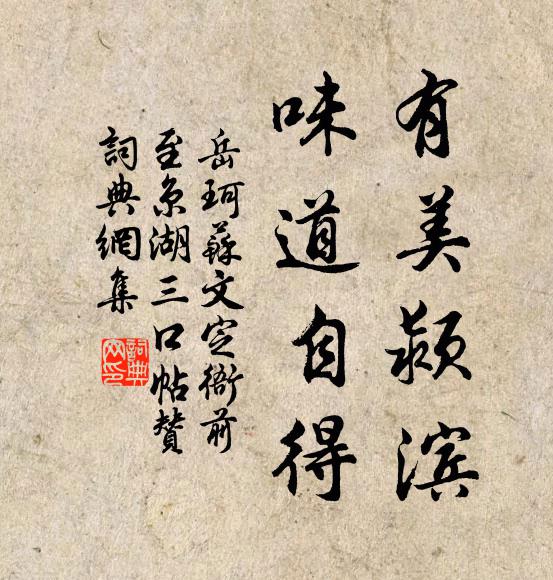 有美颍滨
味道自得
岳珂蘇文定衙前
至京湖三口帖贊
詞典網集
詞典网印